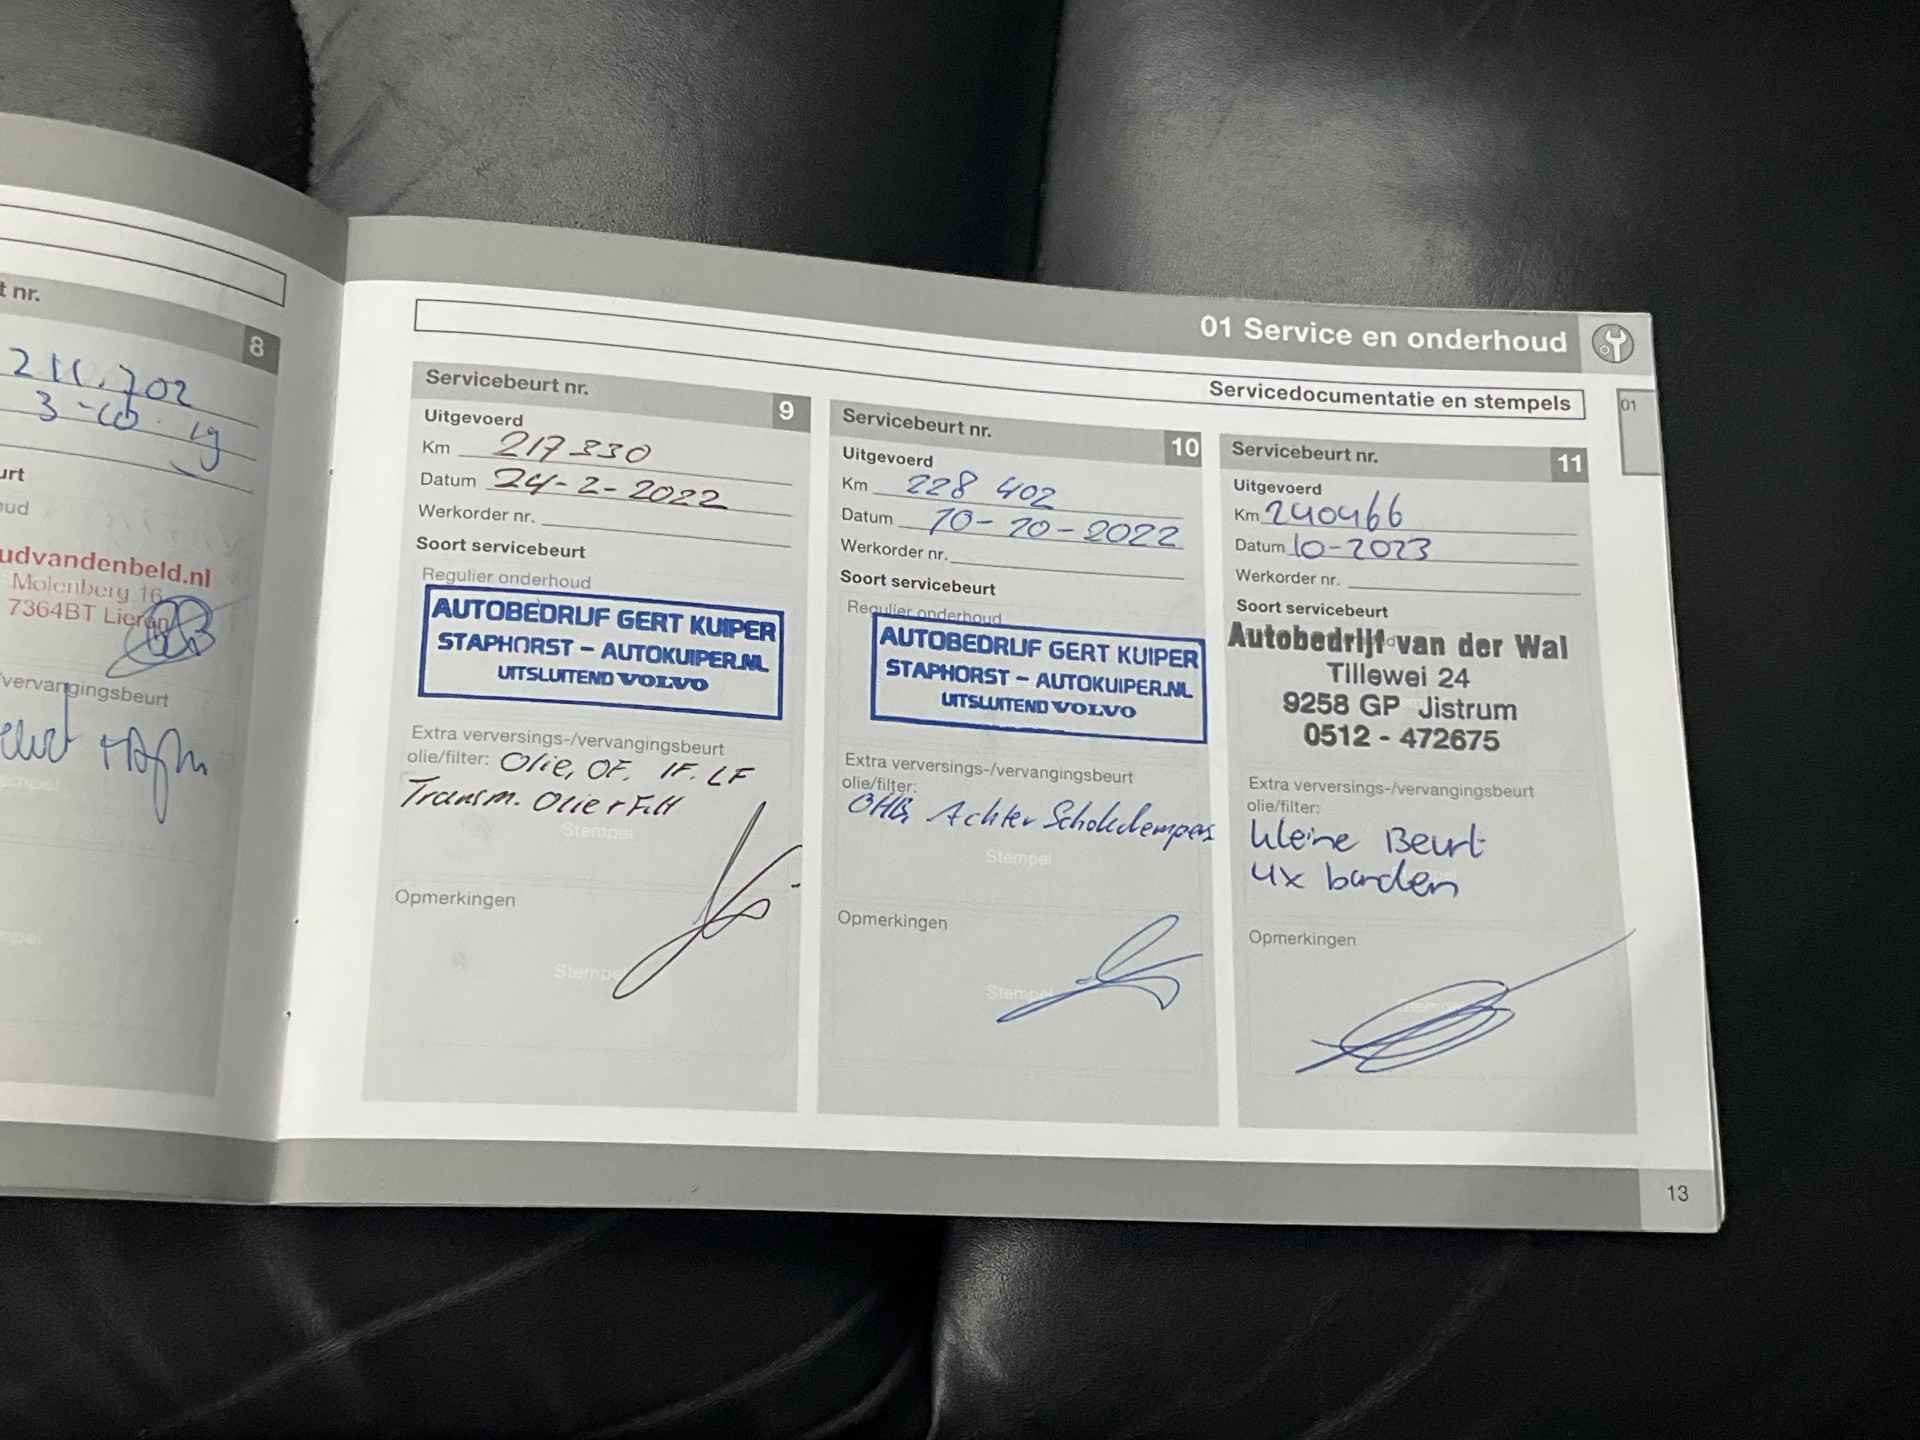 t nr.
8
211.702
3-10-19
urt
oud
udvandenbeld.nl
Molenberg 16
7364BT Lieren
vervangingsbeurt
Stempel
01 Service en onderhoud
Servicedocumentatie en stempels
01
Servicebeurt nr.
9
Uitgevoerd
Km 217330
Datum 24-2-2022
Werkorder nr.
Soort servicebeurt
Regulier onderhoud
AUTOBEDRIJF GERT KUIPER
STAPHORST - AUTOKUIPER.NL
UITSLUITEND VOLVO
Extra verversings-/vervangingsbeurt
olie/filter: Olie, OF. IF. LF
Transm. Olie + Filt
Stempel
Opmerkingen
Stempel
Servicebeurt nr.
10
Uitgevoerd
Km 228 402
Datum 10-10-2022
Werkorder nr.
Soort servicebeurt
Regulier onderhoud
AUTOBEDRIJF GERT KUIPER
STAPHORST - AUTOKUIPER.NL
UITSLUITEND VOLVO
Extra verversings-/vervangingsbeurt
olie/filter:
Achter Schokdempers
Stempel
Opmerkingen
Stempel
Servicebeurt nr.
11
Uitgevoerd
Km 240466
Datum 10-2023
Werkorder nr.
Soort servicebeurt
Autobedrijf van der Wal
Tillewei 24
9258 GP Jistrum
0512 - 472675
Extra verversings-/vervangingsbeurt
olie/filter:
kleine Beurt
4x banden
Opmerkingen
13